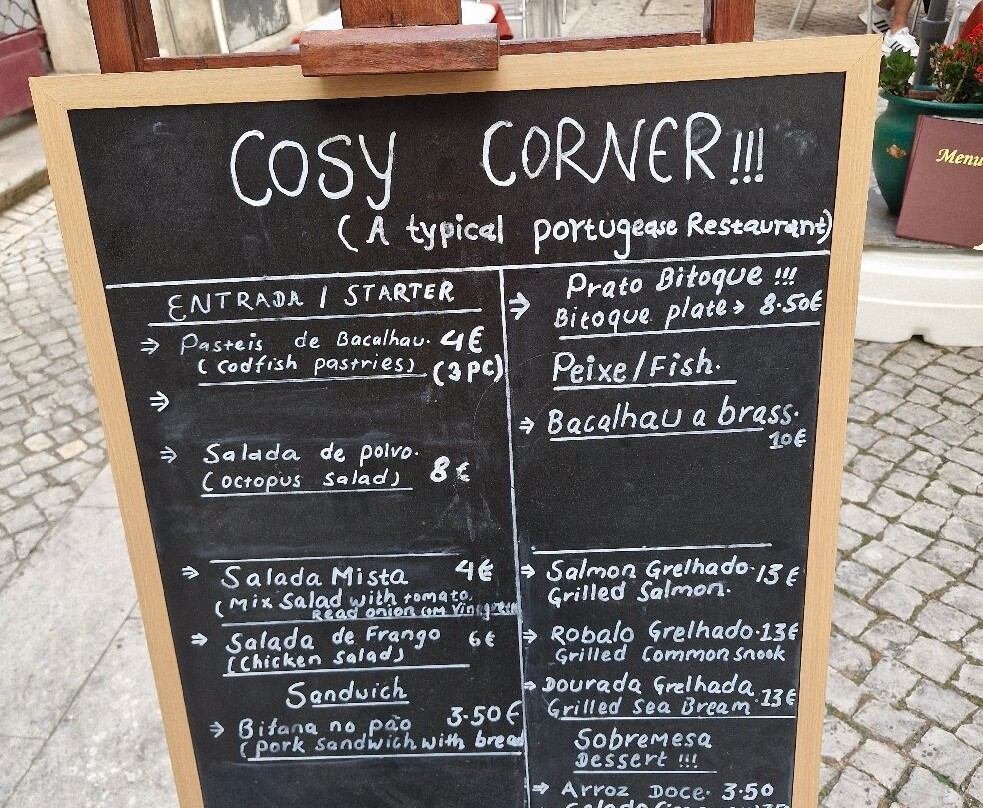 COSY CORNER!!!
(A typical portugease Restaurant)
ENTRADA / STARTER
⇒ Pasteis de Bacalhau. 4€
(codfish pastries) (3PC)
⇒
⇒ Salada de polvo. 8€
(octopus salad)
⇒ Salada Mista 4€
(Mix Salad with tomato,
Read onion com
⇒ Salada de Frango 6€
(Chicken Salad)
Sandwich
⇒ Bifana no pão 3.50€
(pork sandwich with bread
⇒ Prato Bitoque !!!
Bitoque plate→ 8.50€
Peixe/Fish.
⇒ Bacalhau a brass.
10€
⇒ Salmon Grelhado. 13€
Grilled Salmon.
⇒ Robalo Grelhado. 13€
Grilled Common snook
⇒ Dourada Grelhada. 13€
Grilled Sea Bream
Sobremesa
Dessert !!!
⇒ Arroz Doce. 3.50
Menu